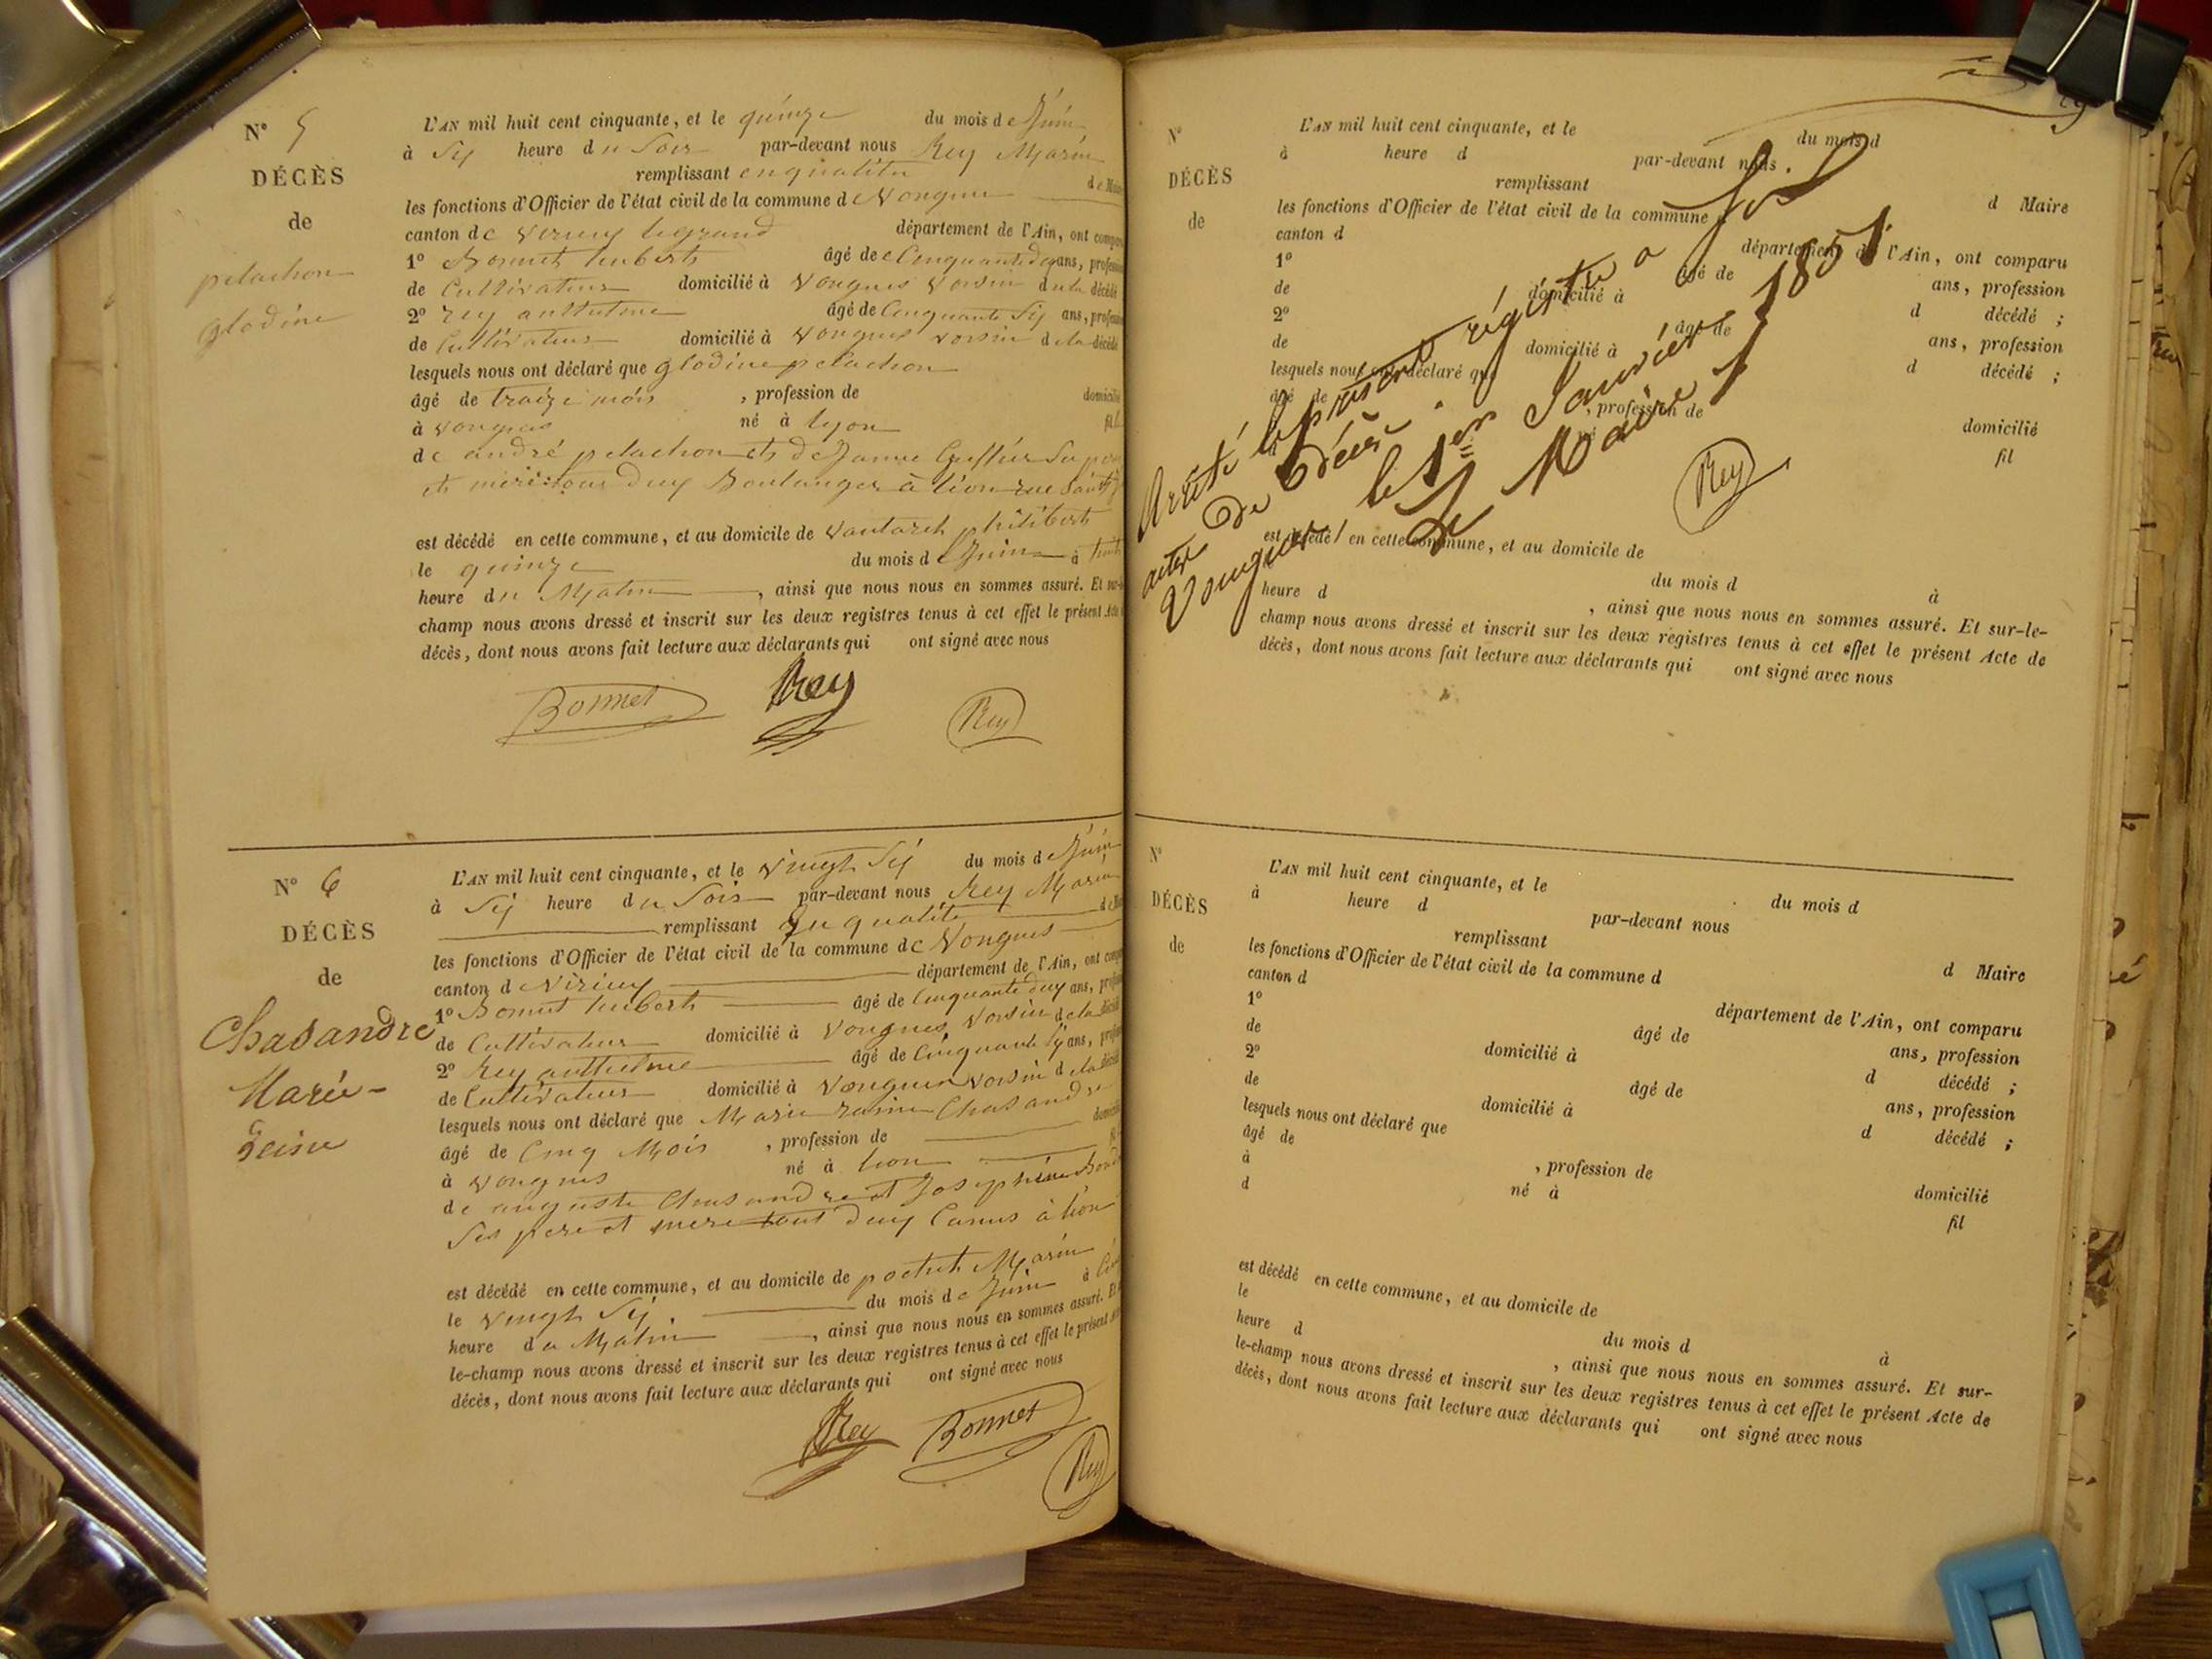 N° 5
DÉCÈS
de
pelachon
glodine
L'AN mil huit cent cinquante, et le quinze du mois de Juin
à Six heure du Soir par-devant nous Rey Marin
remplissant en qualité de Maire
les fonctions d'Officier de l'état civil de la commune de Vongnes
canton de Virieu le grand département de l'Ain, ont comparu
1° Bonnet hubert âgé de Cinquante deux ans, profession
de Cultivateur domicilié à Vongnes Voisin de la décédé
2° rey anthelme âgé de Cinquante Six ans, profession
de Cultivateur domicilié à Vongnes voisin de la décédé
lesquels nous ont déclaré que glodine pelachon
âgé de traize mois , profession de domicilié
à Vongnes né à lyon fil
de andré pelachon et de Janne
et mère tous deux Boulanger à lion rue Saint
est décédé en cette commune, et au domicile de Vautaret philibert
le quinze du mois de Juin à huit
heure du Matin , ainsi que nous nous en sommes assuré. Et sur-le-
champ nous avons dressé et inscrit sur les deux registres tenus à cet effet le présent Acte de
décès, dont nous avons fait lecture aux déclarants qui ont signé avec nous
Bonnet Rey Rey
N° 6
DÉCÈS
de
Chasandre
Marie-
Reine
L'AN mil huit cent cinquante, et le vingt Six du mois de Juin
à Six heure du Soir par-devant nous Rey Marin
remplissant En qualité de Maire
les fonctions d'Officier de l'état civil de la commune de Vongnes
canton de Virieu département de l'Ain, ont comparu
1° Bonnet hubert âgé de Cinquante deux ans, profession
de Cultivateur domicilié à Vongnes Voisin de la décédé
2° Rey anthelme âgé de Cinquante Six ans, profession
de Cultivateur domicilié à Vongnes Voisin de la décédé
lesquels nous ont déclaré que Marie raine Chasandre
âgé de Cinq Mois , profession de domicilié
à Vongnes né à lion fil
de auguste Chasandre et Josephine
Ses pere et mere tout deux Canus à lion
est décédé en cette commune, et au domicile de poctet Marin
le Vingt Six du mois de Juin à
heure du Matin , ainsi que nous nous en sommes assuré. Et sur-
le-champ nous avons dressé et inscrit sur les deux registres tenus à cet effet le présent Acte de
décès, dont nous avons fait lecture aux déclarants qui ont signé avec nous
Rey Bonnet
Rey
N°
DÉCÈS
de
L'AN mil huit cent cinquante, et le du mois d
à heure d par-devant nous
remplissant d Maire
les fonctions d'Officier de l'état civil de la commune d
canton d département de l'Ain, ont comparu
1° âgé de ans, profession
de domicilié à d décédé ;
2° âgé de ans, profession
de domicilié à d décédé ;
lesquels nous ont déclaré que
âgé de , profession de domicilié
né à fil
Arrêté le présent régistre a Six
acte De Décès.
Vongnes le 1er Janvier 1851
Le Maire
Rey
est décédé en cette commune, et au domicile de
du mois d à
heure d , ainsi que nous nous en sommes assuré. Et sur-le-
champ nous avons dressé et inscrit sur les deux registres tenus à cet effet le présent Acte de
décès, dont nous avons fait lecture aux déclarants qui ont signé avec nous
N°
DÉCÈS
de
L'AN mil huit cent cinquante, et le du mois d
à heure d par-devant nous
remplissant d Maire
les fonctions d'Officier de l'état civil de la commune d
canton d département de l'Ain, ont comparu
1° âgé de ans, profession
de domicilié à d décédé ;
2° âgé de ans, profession
de domicilié à d décédé ;
lesquels nous ont déclaré que
âgé de , profession de domicilié
à né à fil
d
est décédé en cette commune, et au domicile de
le du mois d à
heure d , ainsi que nous nous en sommes assuré. Et sur-
le-champ nous avons dressé et inscrit sur les deux registres tenus à cet effet le présent Acte de
décès, dont nous avons fait lecture aux déclarants qui ont signé avec nous